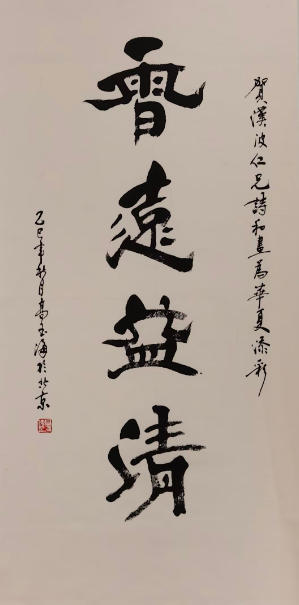 賀漢波仁兄詩和畫為華夏添彩
香遠益清
乙巳年秋月高玉海於北京